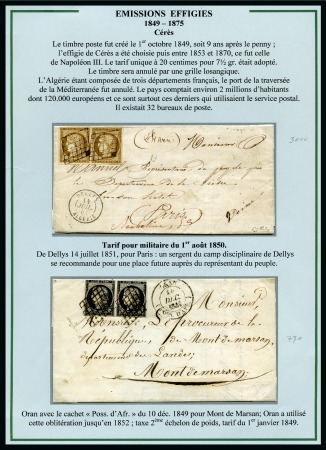 EMISSIONS EFFIGIES
1849 – 1875
Cérès
Le timbre poste fut créé le 1er octobre 1849, soit 9 ans après le penny ;
l'effigie de Cérès a été choisie puis entre 1853 et 1870, ce fut celle
de Napoléon III. Le tarif unique à 20 centimes pour 7½ gr. était adopté.
Le timbre sera annulé par une grille losangique.
L'Algérie étant composée de trois départements français, le port de la traversée
de la Méditerranée fut annulé. Le pays comptait environ 2 millions d'habitants
dont 120.000 européens et ce sont surtout ces derniers qui utilisaient le service postal.
Il existait 32 bureaux de poste.
Monsieur
Représentant
Paris
Tarif pour militaire du 1er août 1850.
De Dellys 14 juillet 1851, pour Paris : un sergent du camp disciplinaire de Dellys
se recommande pour une place future auprès du représentant du peuple.
Monsieur
Monsieur Le Procureur de la
République, de Mont de marsan,
département des Landes
Mont de marsan
Oran avec le cachet « Poss. d'Afr. » du 10 déc. 1849 pour Mont de Marsan; Oran a utilisé
cette oblitération jusqu'en 1852 ; taxe 2ème échelon de poids, tarif du 1er janvier 1849.